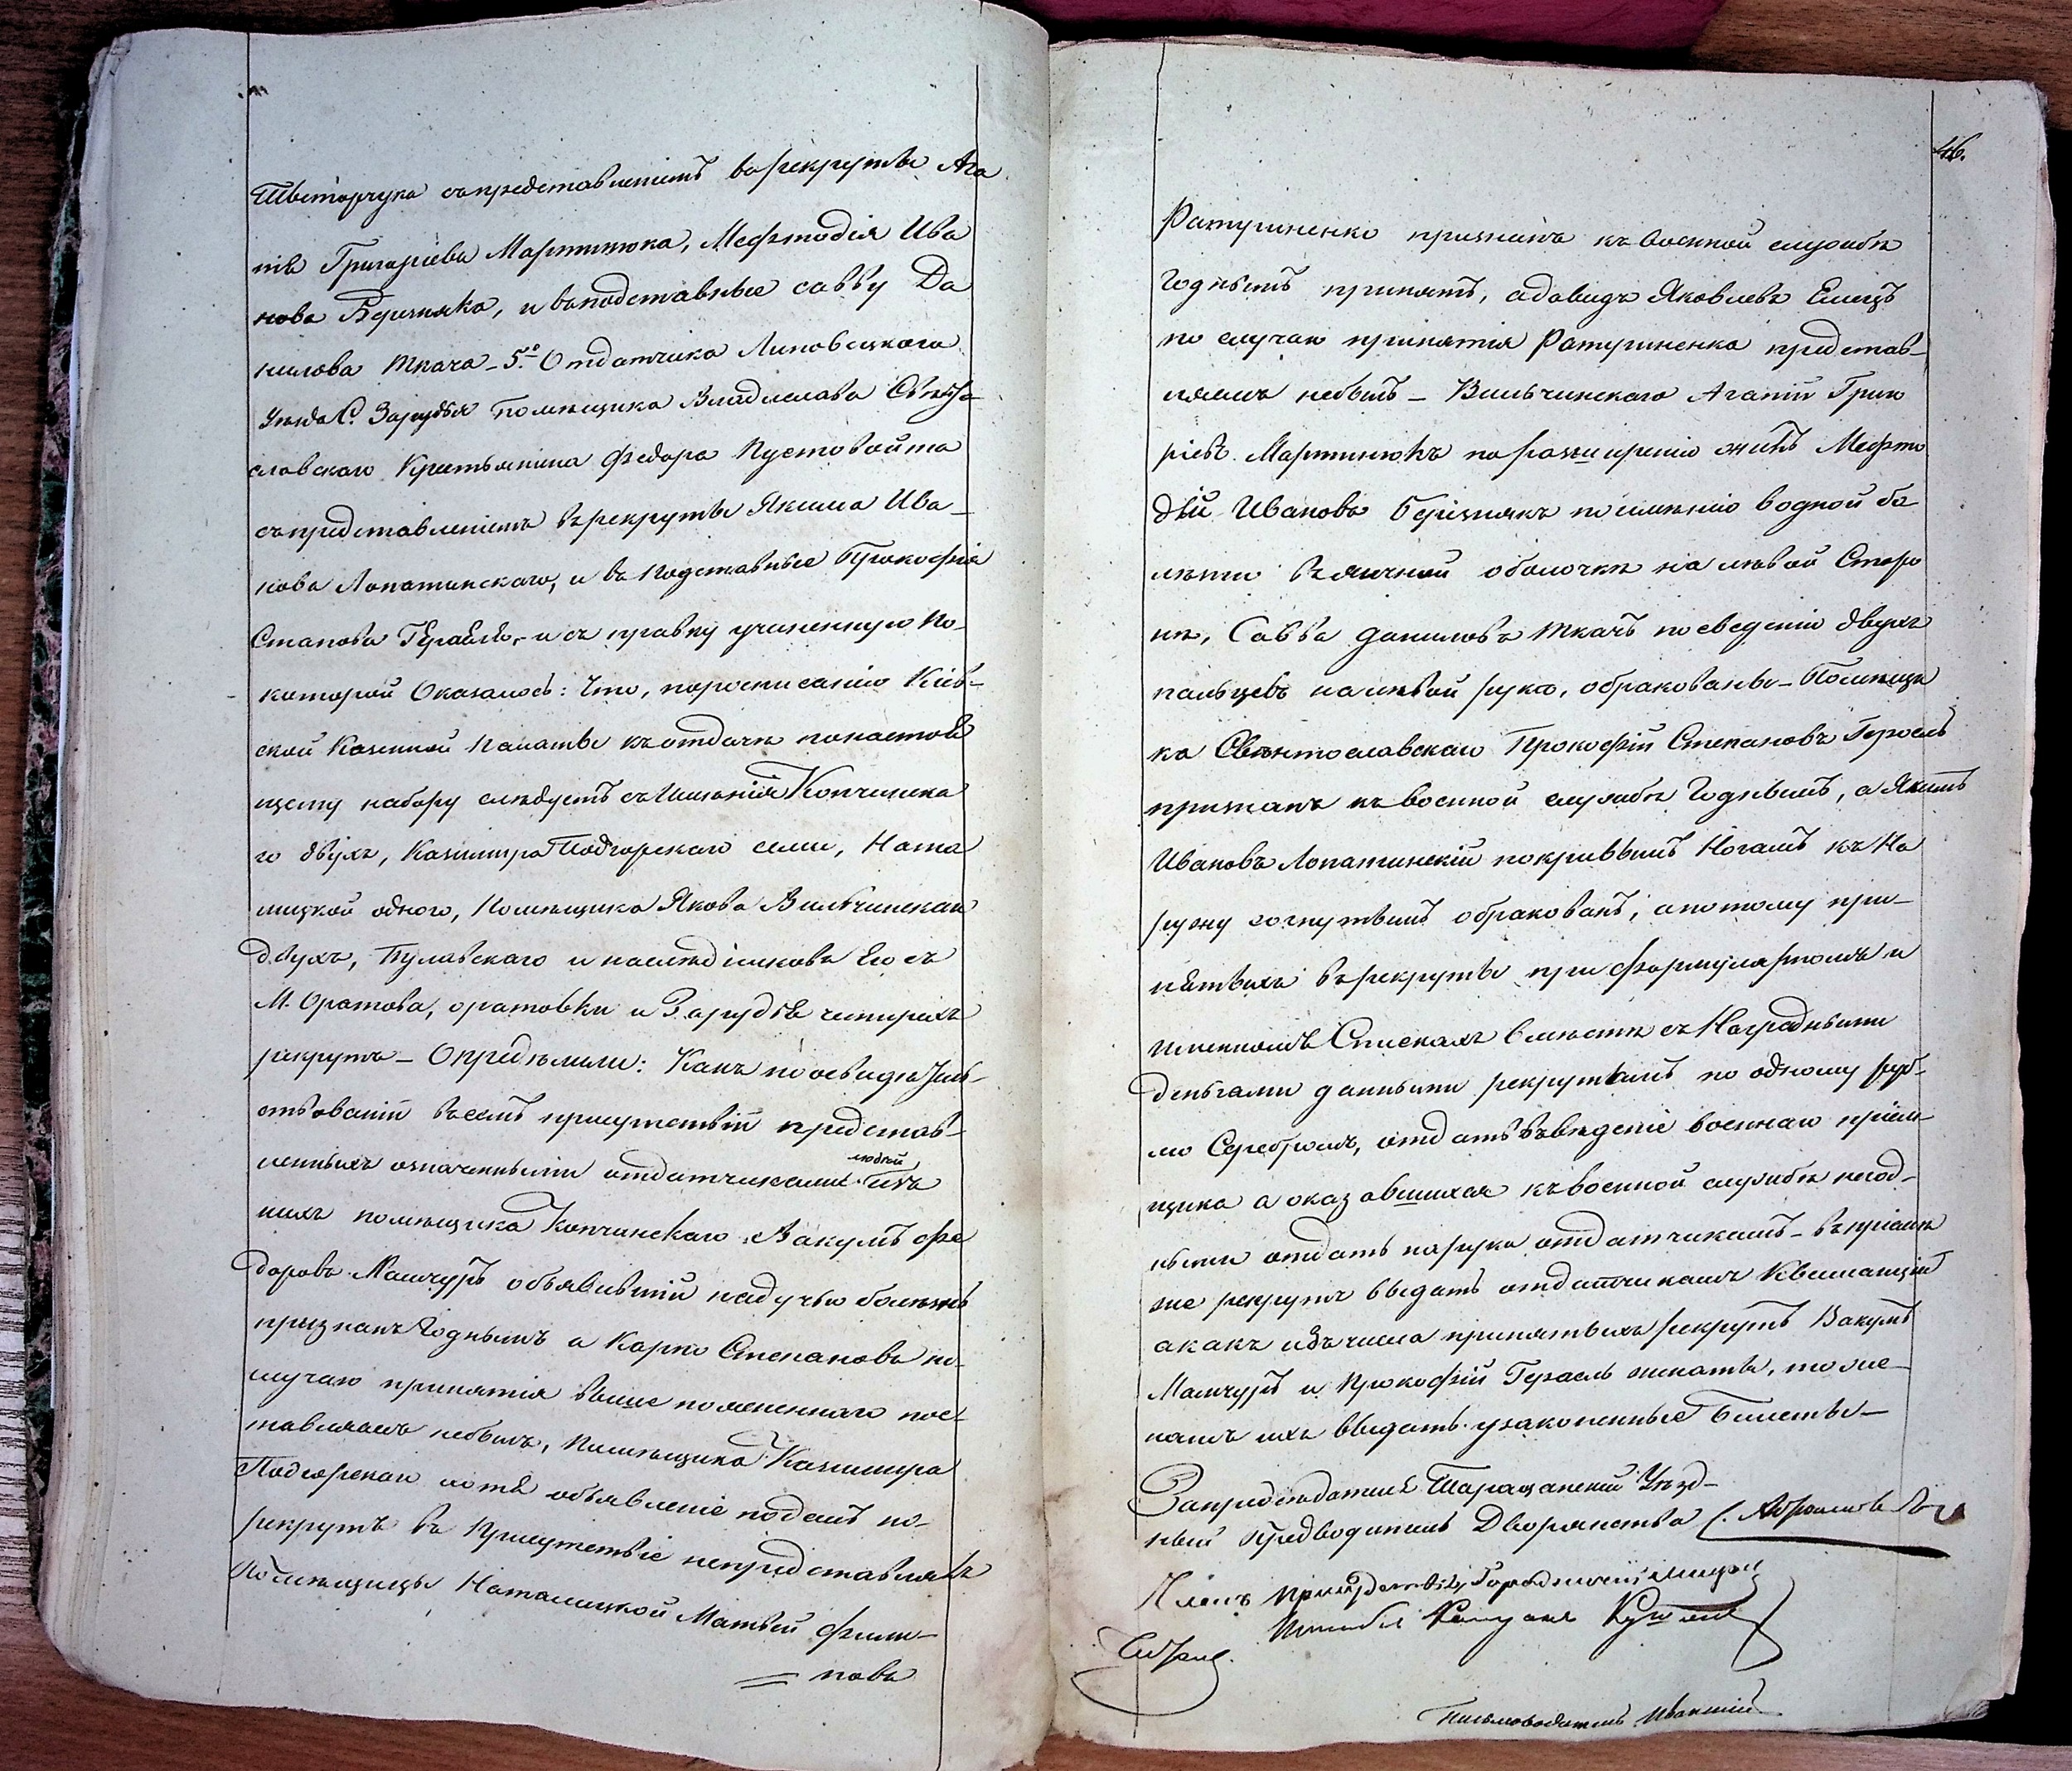 Шветорчука съ представленіемъ въ рекруты Ага
пія Григоріева Мартинюка, Мефтодія Ива
нова Березняка, и въ подставные Савву Да
нилова Ткача – 5.º Отдатчика Липовецкаго
Уезда С. Зарудья помѣщика Владислава Свенто
славскаго Крестьянина Федора Пустовойта
съ представленіемъ въ рекруты Якима Ива-
нова Лопатинскаго, и въ подставные Прокофія
Степанова Гераеля, и съ правку учиненную по-
которой Оказалось: Что, по росписанію Кіев-
ской Казенной палаты къ отдачи по настоя
щему набору слѣдуетъ съ имѣнія Копчинска
го двухъ, Казимира Подгорскаго семи, Ната
лицкой одного, помѣщика Якова Вильчинскаго
двухъ, Пулавскаго и наслѣдниковъ Его съ
М. Оратова, оратовки и Зарудья четырехъ
рекрутъ – Опредѣлили: Какъ по освидѣтель-
ствованіи въ семъ присутствіи представ-
ленныхъ означенными отдатчиками людей изъ
нихъ помѣщика Копчинскаго Вакумъ Фе
доровъ Маличуръ объявившій падучью болѣзнь
признанъ Годнымъ а Карпо Степановъ по-
случаю принятія выше помененнаго пос-
тавляемъ небылъ, помѣщика Казимира
Подгорскаго хотя объявленіе подалъ но-
рекрутъ въ присутствіе непредставлялъ
Помѣщицы Наталицкой Матвей Фили-
= повъ
46.
Ратушненко признанъ къ военной службѣ
Годнымъ принятъ, а Давидъ Яковлевъ Емецъ
по случаю принятія Ратушненка представ-
ляемъ небылъ – Вильчинскаго Агапій Григо
ріевъ Мартинюкъ по разширенію жилъ Мефто
дій Ивановъ Березнякъ по имѣнію водной бо
лѣзни въ яичной оболочкѣ на лѣвой Сторо
нѣ, Савва Даниловъ Ткачъ по сведенію двухъ
пальцевъ на лѣвой руке, обракованы – Помѣщи
ка Свентославскаго Прокофій Степановъ Гераель
признанъ къ военной службѣ Годнымъ, а Якимъ
Ивановъ Лопатинскій по кривымъ Ногамъ къ На
ружу согнутымъ обракованъ; а потому при-
нятыхъ въ рекруты при формулярномъ и
имянномъ Спискахъ вмѣстѣ съ Наградными
деньгами данными рекрутамъ по одному руб-
лю Серебромъ, отдать въ вѣденіе военнаго пріем
щика а оказавшихся къ военной службѣ негод-
ными отдать на руки отдатчикамъ – въ пріемѣ
же рекрутъ выдать отдатчикамъ Квитанціи
а какъ изъ числа принятыхъ рекрутъ Вакумъ
Маличуръ и Прокофій Гераель женаты, то же-
намъ ихъ выдать узаконенные Билеты –
За предсѣдателя Таращанскій Уезд-
ный Предводитель Дворянства
Членъ присутствія, Городничій
Письмоводитель